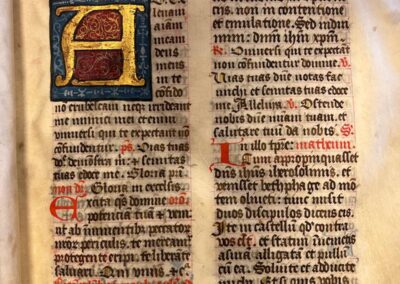 A D te
leuaui
aīam
meam
deus
meus
in te
cōfido
nō erubescam neqꝫ irrideant
me inimici mei etenim
vniuersi qui te expectant nō
cōfundentur. p̄s. Vias tuas
dn̄e demōstra m̄ & semitas
tuas edoce me. Gloria pri
non dr̄. Gloria in excelsis.
Excita qs̄ domine oro
potenciā tuā & ven
ut ab imminentibus peccator
nr̄or periculis. te meream̄
protegente eripi. te liberāte
saluari. Qui viuis. +c̄.
ciis, non in contentione
et emulatione. Sed indui
mini: dnm ihm xp̄m.
Re. Vniuersi qui te expectāt
non confundentur domine. V.
Vias tuas dn̄e notas fac
michi et semitas tuas edoce
me. Alleluia V. Ostende
nobis dn̄e miām tuam, et
salutare tuū da nobis. S.
In illo tp̄re: matheum.
Cum appropinquasset
dn̄s ihūs iherosolimis. et
venisset bethphage ad mō
tem oliueti: tunc misit
duos discipulos dicens eis.
Ite in castellū qd̓ contra
vos est, et statim inuenietis
asinā alligatā et pullū
cū ea. Soluite et adducite
michi. Et si quis vobis